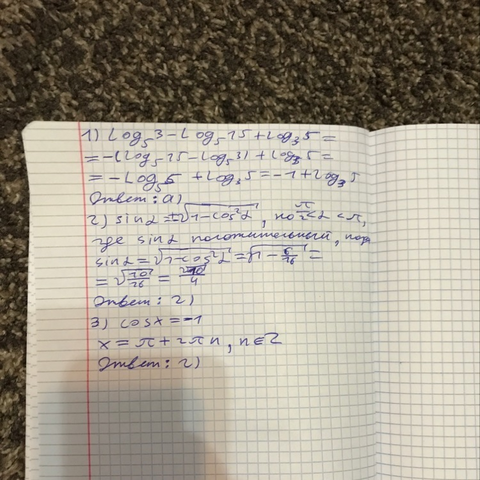 1) log₅3 - log₅15 + log₃5 =
= -(log₅15 - log₅3) + log₃5 =
= -log₅5 + log₃5 = -1 + log₃5
Ответ: а)
2) sinα = ±√(1-cos²α), но π/2 < α < π,
где sinα положительный,
sinα = √(1-cos²α) = √(1 - 6/16) =
= √(10/16) = √10/4
Ответ: г)
3) cosx = -1
x = π + 2πn, n∈Z
Ответ: г)